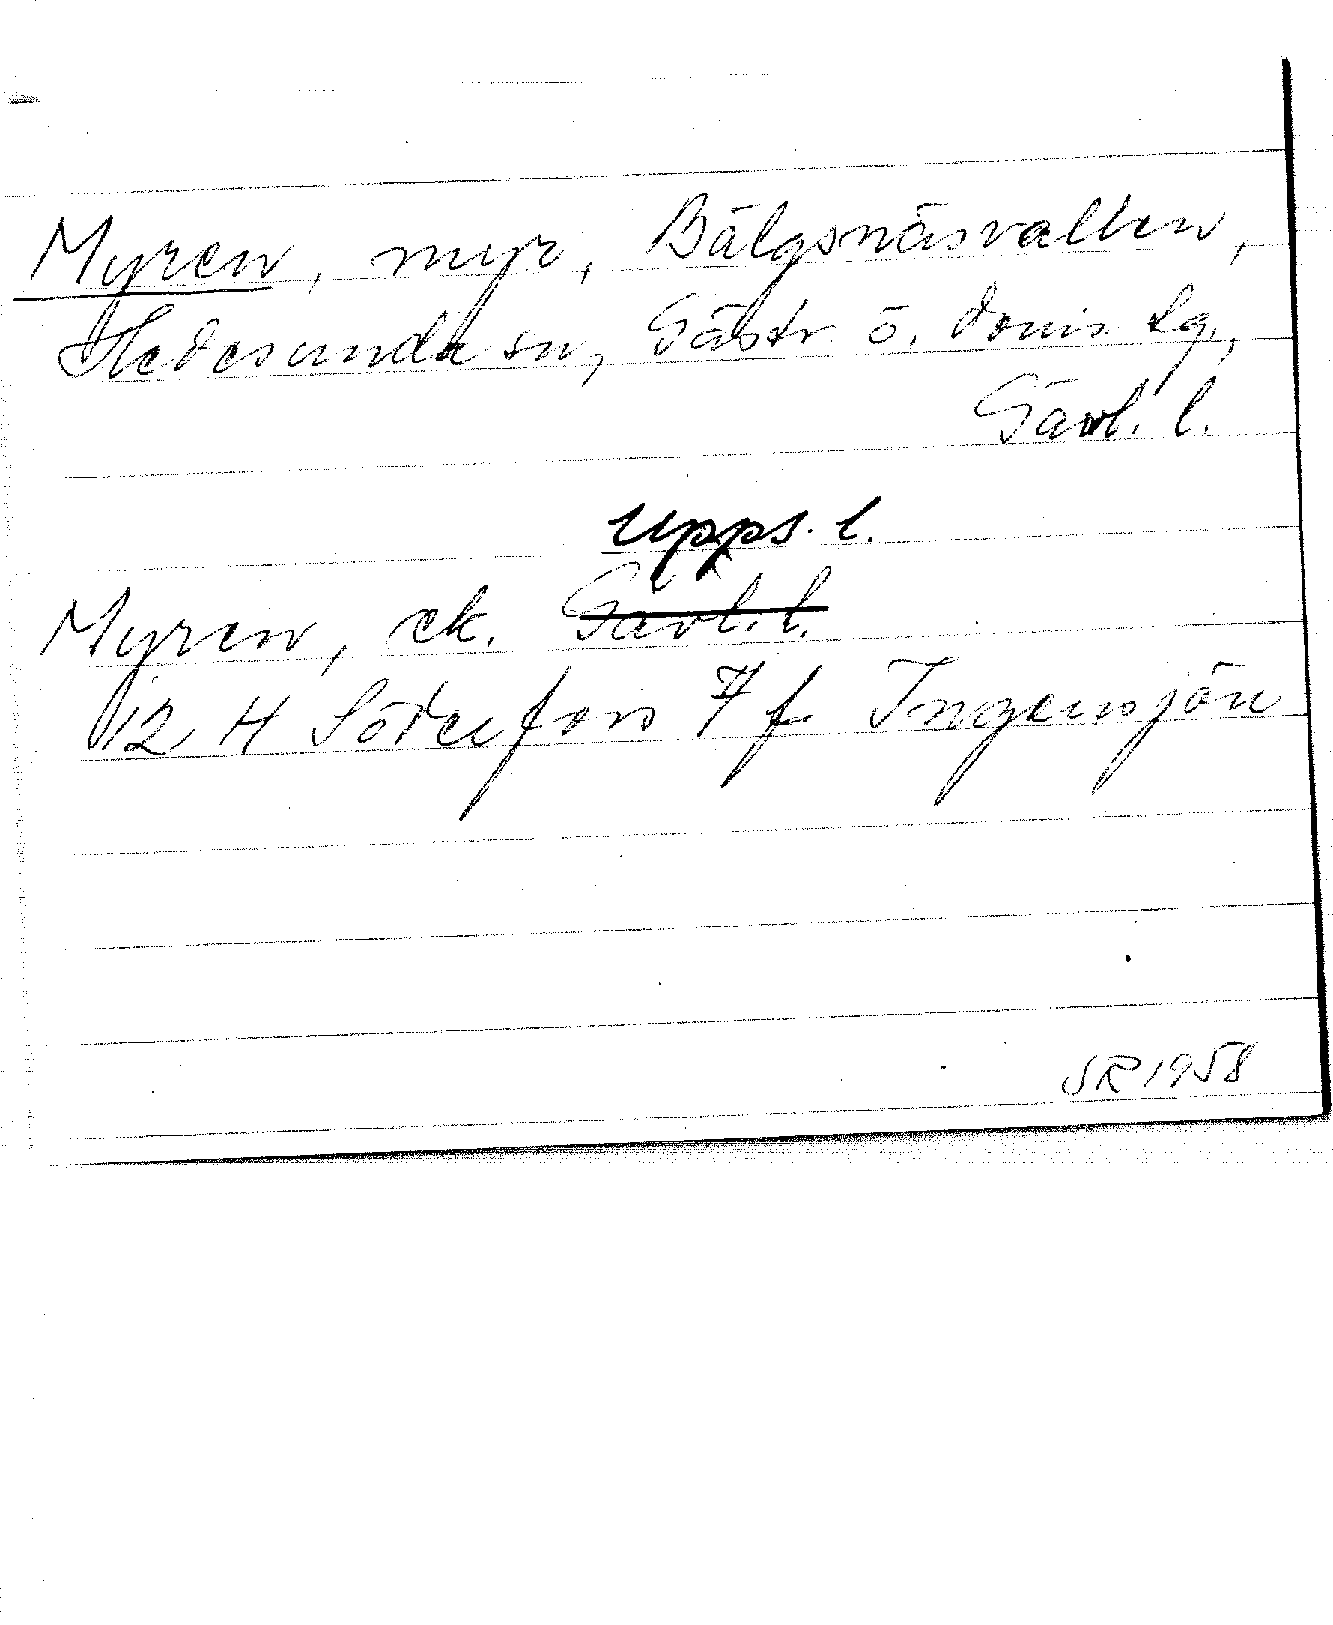 Myren, myr, Bälgsnäsvallen,
Hedesunda sn, Gästr. ö. doms lg,
Gävl. l.
Upps. l.
Myren, ek. Gävl. l.
12 H Söderfors 7 f Ingensjön
SR 1958